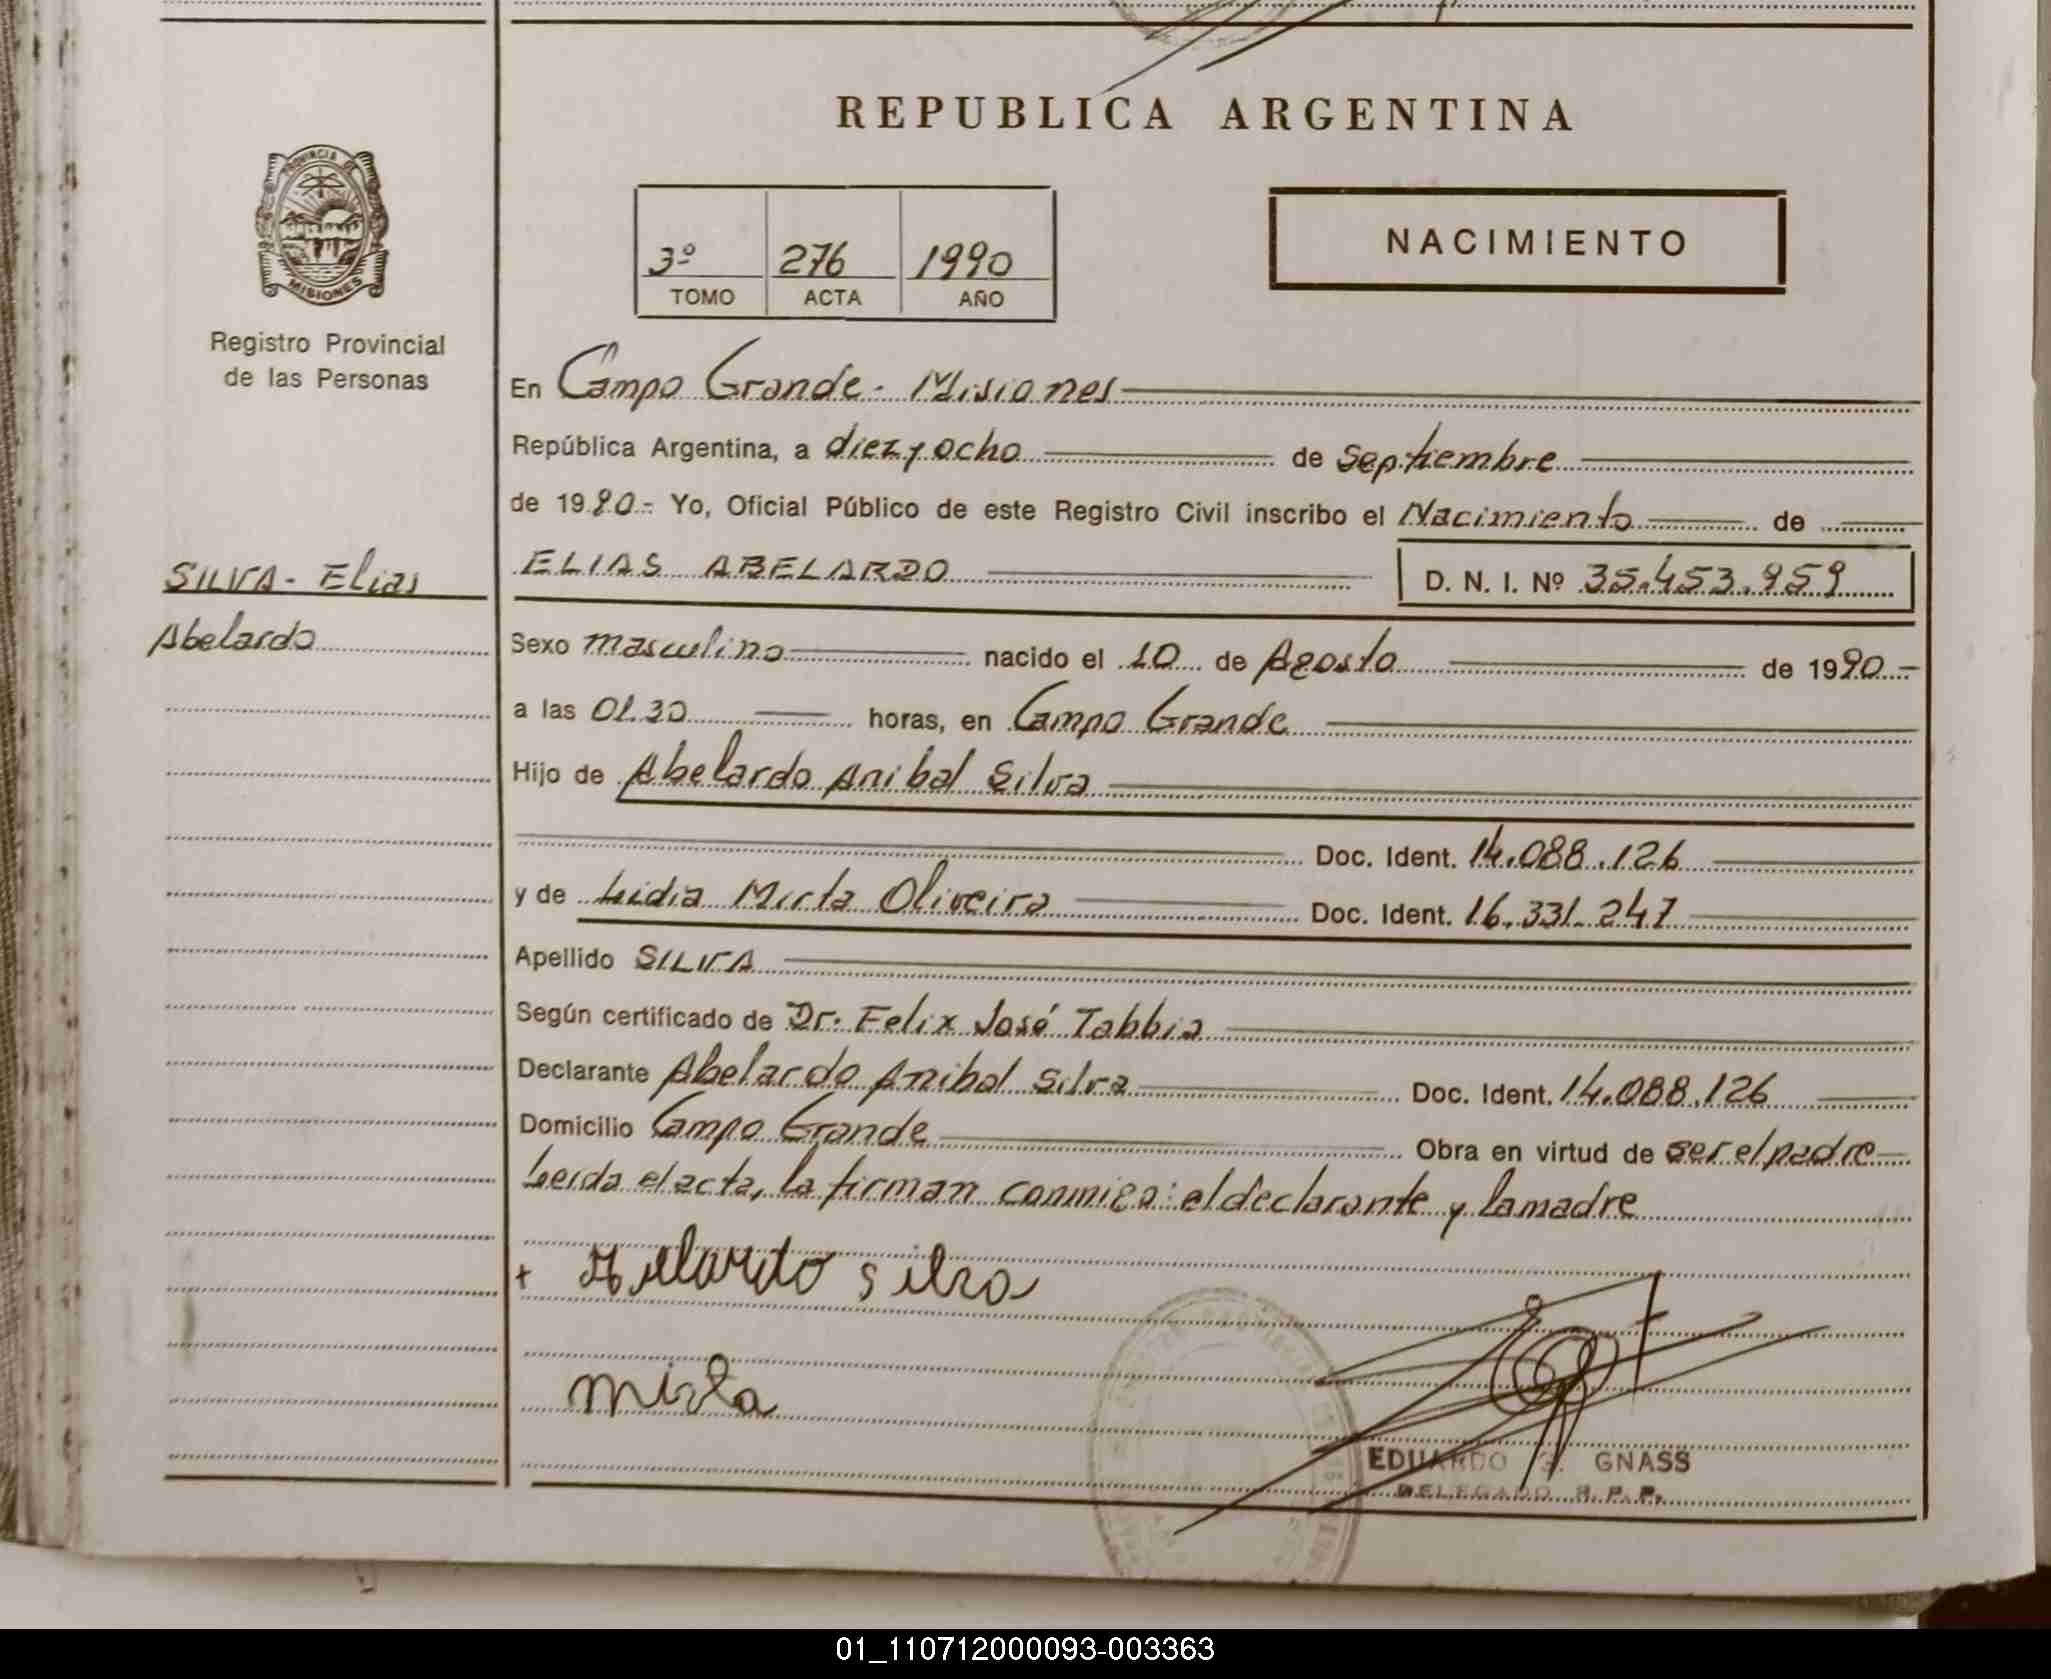 REPUBLICA ARGENTINA
PROVINCIA DE
MISIONES
Registro Provincial
de las Personas
3º 276 1990
TOMO ACTA AÑO
NACIMIENTO
En Campo Grande - Misiones
República Argentina, a diez y ocho de Septiembre
de 1990.- Yo, Oficial Público de este Registro Civil inscribo el Nacimiento de
SILVA - Elias
Abelardo
ELIAS ABELARDO D. N. I. Nº 35.453.959
Sexo masculino nacido el 10 de Agosto de 1990.-
a las 01.30 horas, en Campo Grande
Hijo de Abelardo Anibal Silva
Doc. Ident. 14.088.126
y de Lidia Mirta Oliveira Doc. Ident. 16.331.247
Apellido SILVA
Según certificado de Dr. Felix José Tabbia
Declarante Abelardo Anibal Silva Doc. Ident. 14.088.126
Domicilio Campo Grande Obra en virtud de ser el padre
Leida el acta, la firman conmigo: el declarante y la madre
+ Abelardo silva
mirta
EDUARDO G. GNASS
DELEGADO R.P.P.
01_110712000093-003363